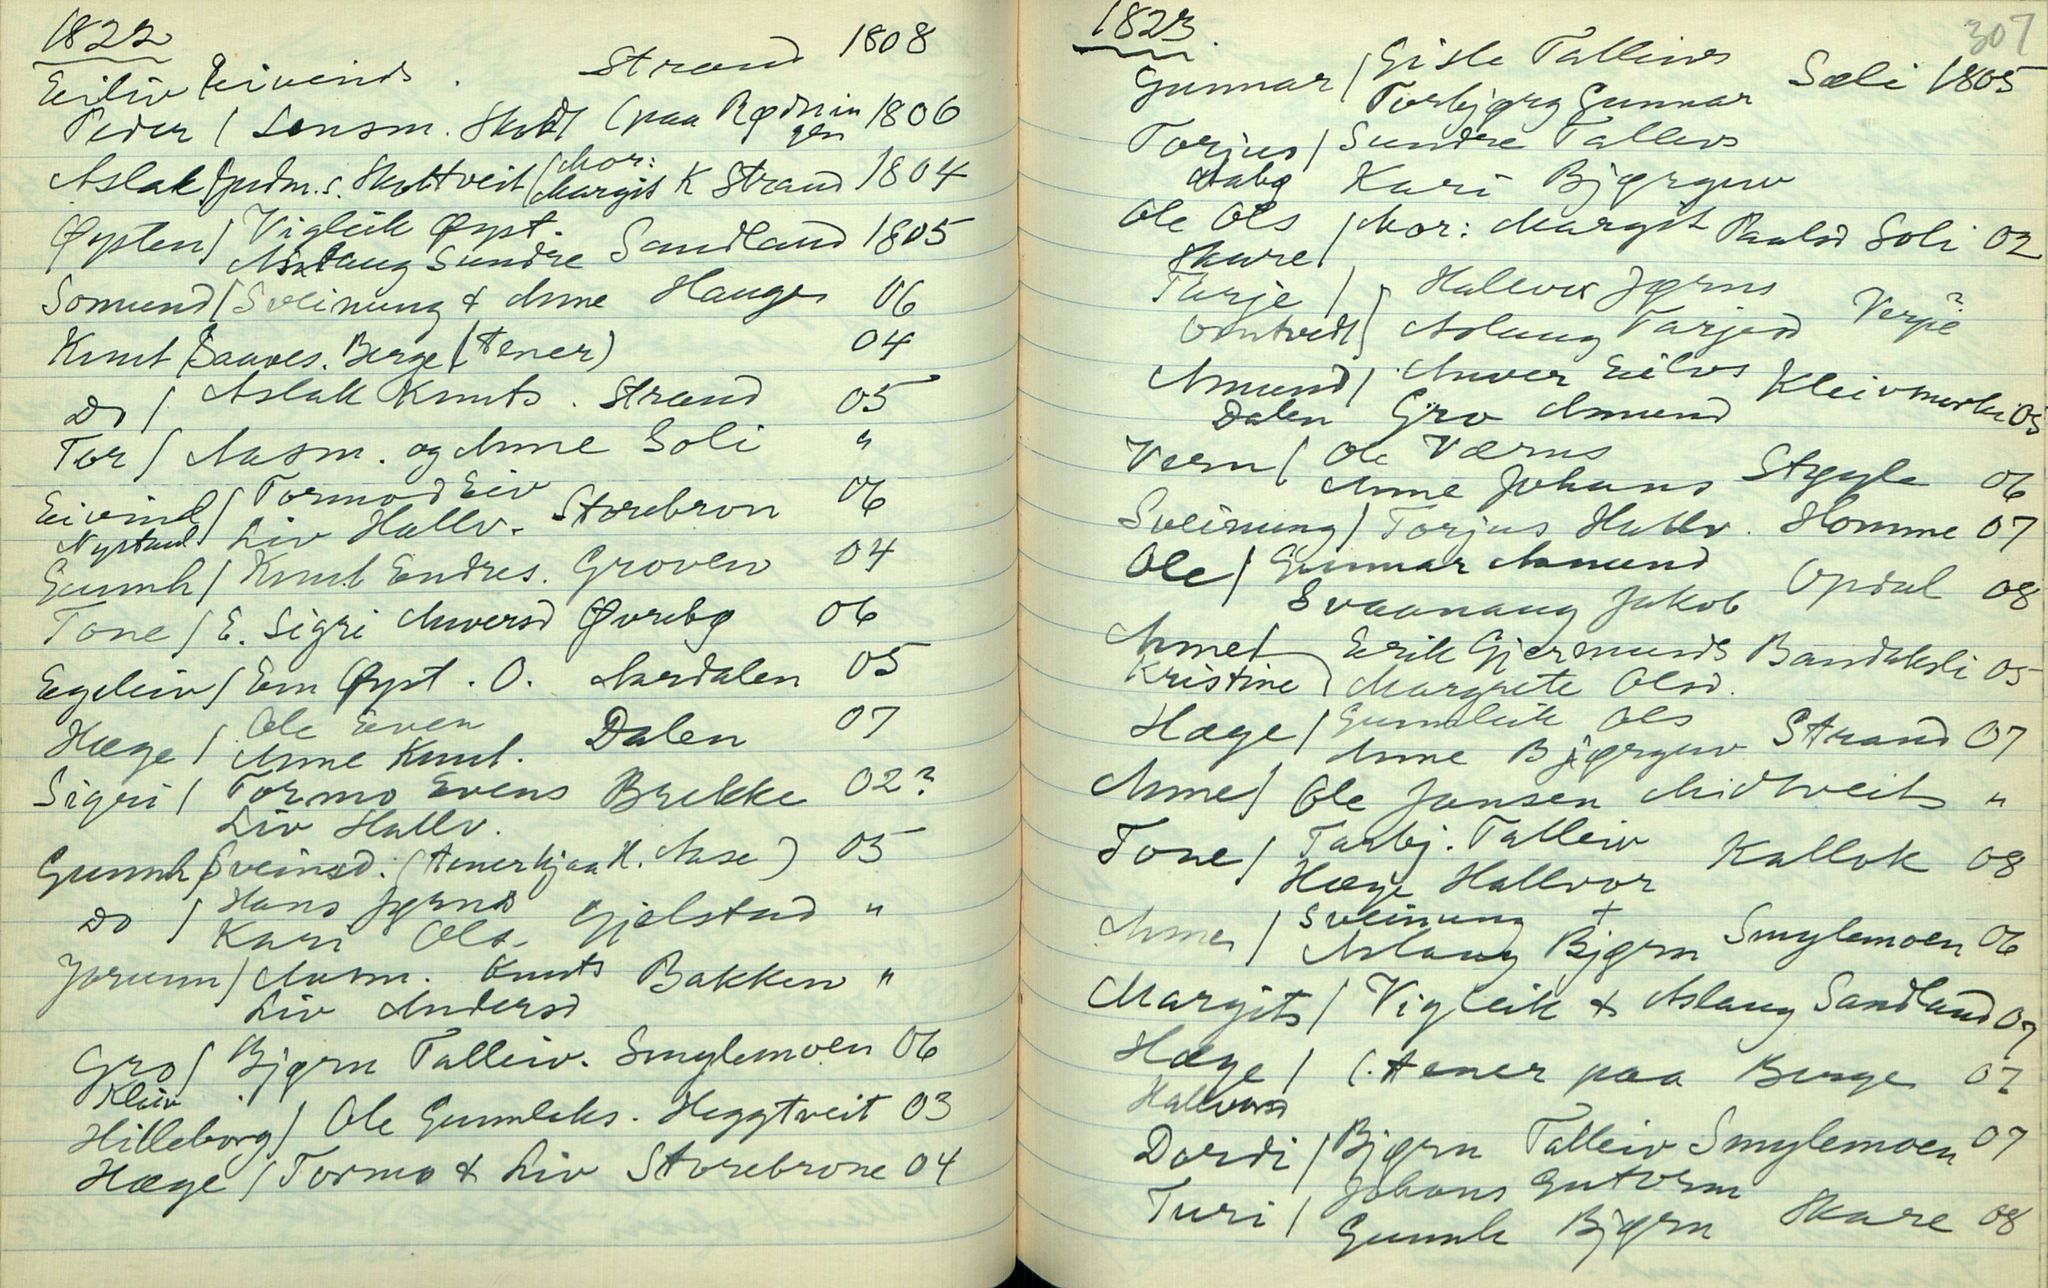 1822
Eiliv Eivinds. Strand 1808
Peder / Lensm. (paa Rødnin 1806
gen
Aslak Skottveit (Mor:
Margit K Strand 1804
Øysten / Vigleik Øyst.
Aslaug Sundre Sandland 1805
Somund / Sveinung & Anne Hauge 06
Knut Saaves. Berge (tener) 04
Do / Aslak Knuts. Strand 05
Tor / Aasm. og Anne Soli "
Eivind / Tormod Eiv
Nystaul Liv Hallv. Storebron 06
Gunnh / Knut Endres. Groven 04
Tone / E. Sigri Anversd Øvrebø 06
Egeleiv / Em Øyst. O. Aardalen 05
Hæge / Ole Even
Anne Knut. Dalen 07
Sigri / Tormo Evens Brekke 02?
Liv Hallv.
Gunnh Sveinsd. (tener hjaa H. Aase) 05
Do / Hans Jørns
Kari Ols. Gjelstad "
Jorunn / Aasm. Knuts Bakken "
Liv Andersd
Gro / Bjørn Talleiv. Smylemoen 06
Kleiv
Hilleborg / Ole Gunleiks. Heggtveit 03
Hæge / Tormo & Liv Storebrone 04
307
1823
Gunnar / Gisle Talleivs
Torbjørg Gunnar Sæli 1805
Torjus / Sundre Talleivs
Dalg Kari Bjørguv
Ole Ols / Mor: Margit Paalsd Soli 02
Skare
Tarje / Hallvor Jørns
Omtvedt Aslaug Tarjesd Verpe?
Amund / Anver Eilvs
Dalen Gro Amund Kleivmarki 05
Vern / Ole Værns
Anne Johans Styggle 06
Sveinung / Torjus Hallv. Homme 07
Ole / Gunnar Amund
Svaanaug Jakob Opdal 08
Anne / Erik Gjermunds Bandaksli 05
Kristine Margrete Olsd.
Hæge / Gunleik Ols
Anne Bjørguv Strand 07
Anne / Ole Jansen Midtveit "
Tone / Tarbj. Talleiv
Hæge Hallvor Kallok 08
Anne / Sveinung +
Aslaug Bjørn Smylemoen 06
Margits / Vigleik & Aslaug Sandland 07
Hæge / (tener paa Berge 07
Hallvors
Dordi / Bjørn Talleiv Smylemoen 07
Turi / Johans Gutorm
Gunnh Bjørn Skare 08